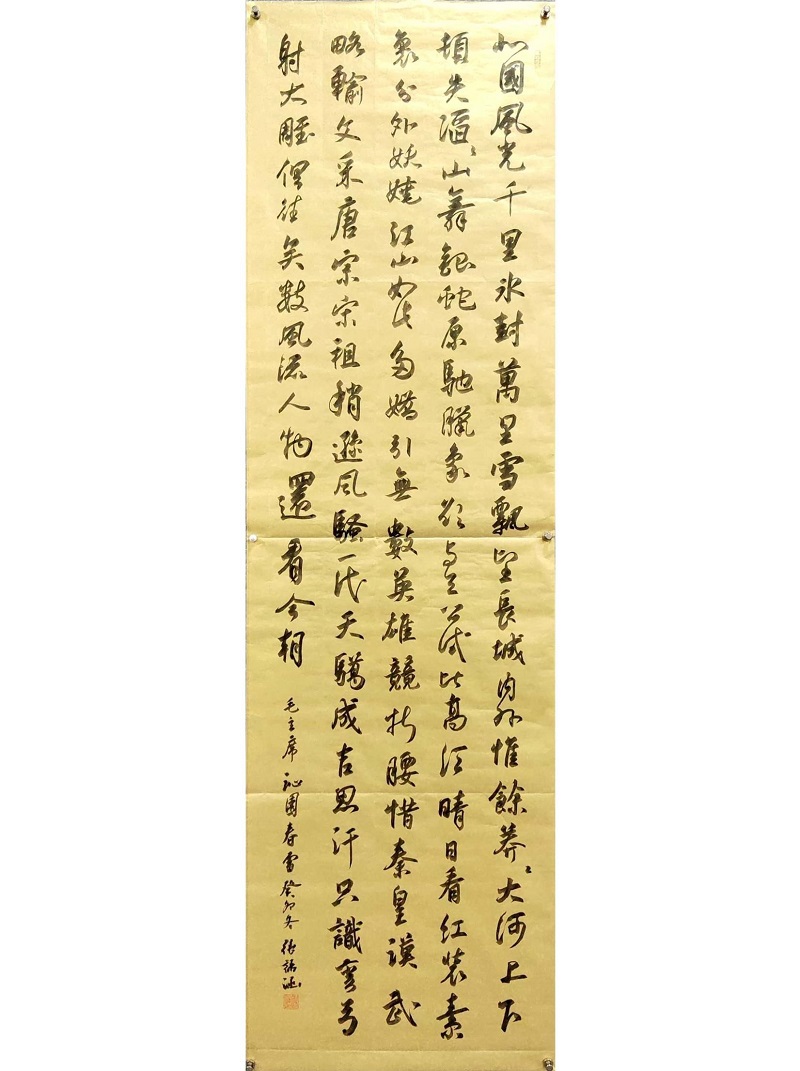 北國風光千里氷封萬里雪飄望長城内外惟餘莽々大河上下
頓失滔々山舞銀蛇原馳臘象欲与天公試比高须晴日看红裝素
裹分外妖娆江山如此多嬌引無數英雄競折腰惜秦皇漢武
略輸文采唐宗宋祖稍遜风騷一代天驕成吉思汗只識彎弓
射大雕俱往矣數風流人物還看今朝
毛主席沁園春雪癸卯冬張